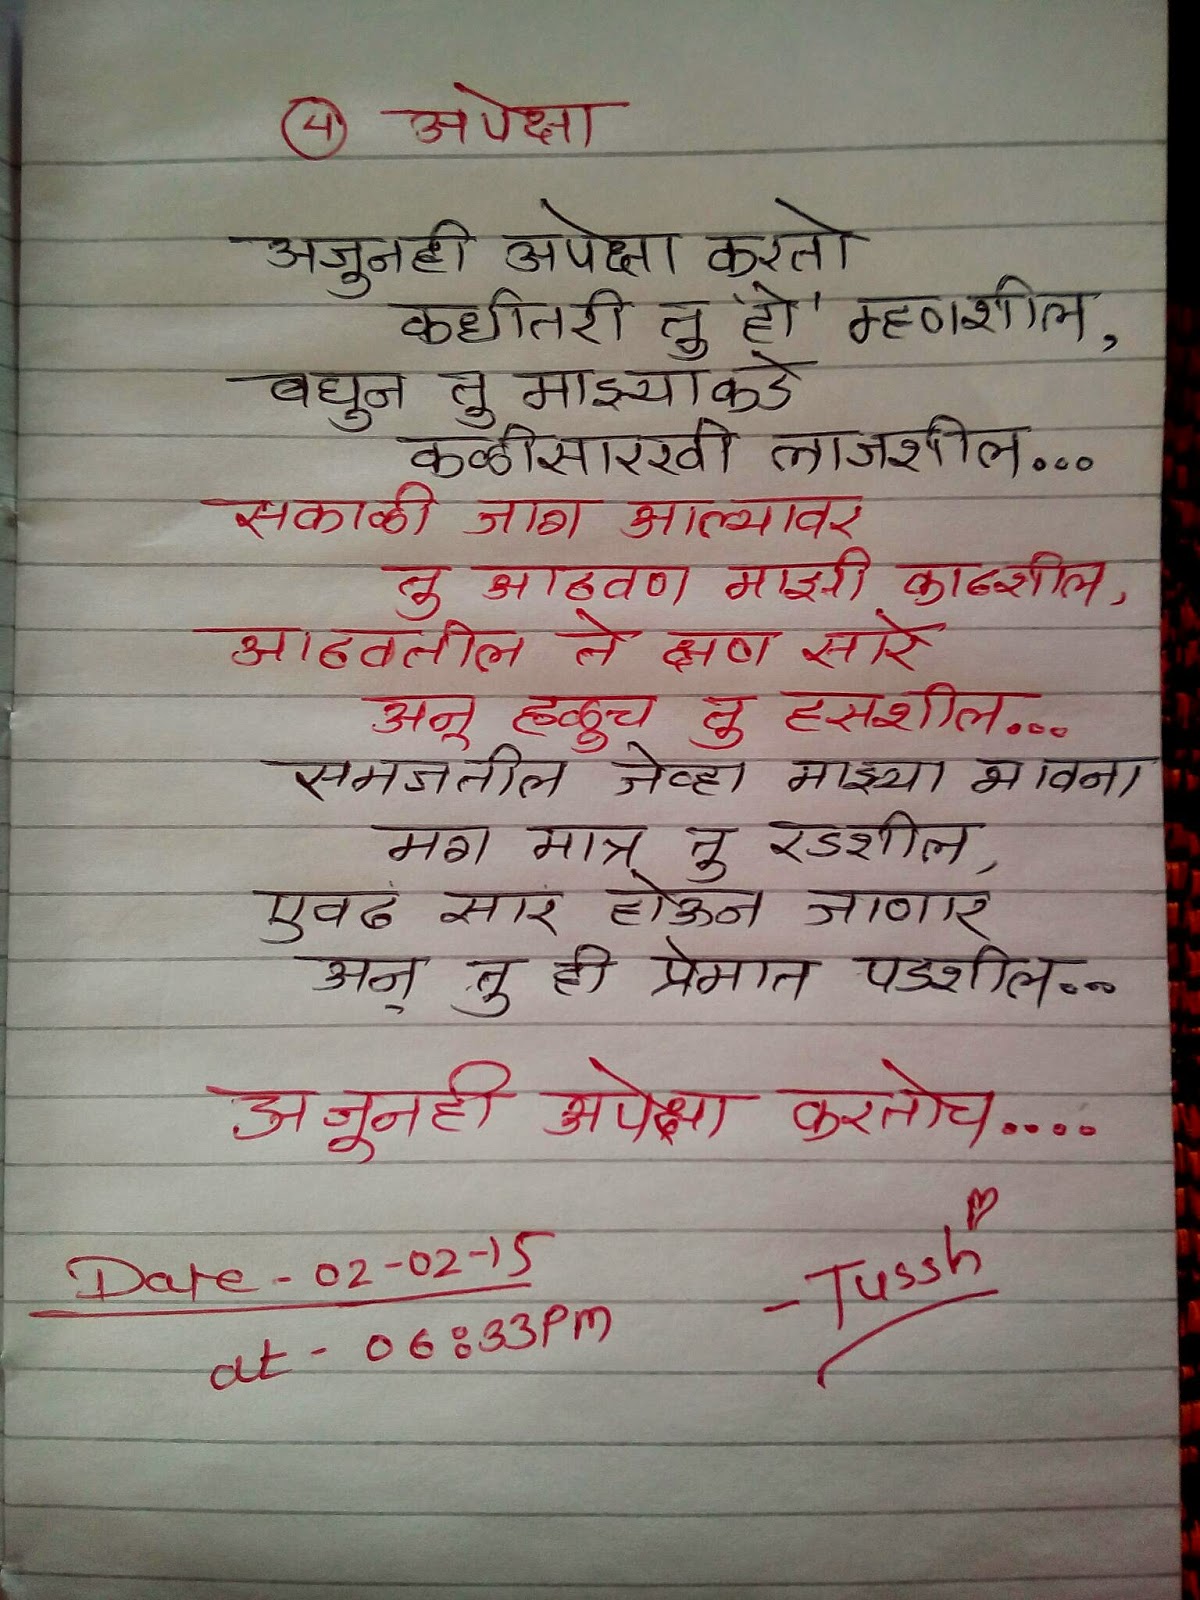 ४ अपेक्षा
अजुनही अपेक्षा करतो
कधीतरी तु 'हो' म्हणशील,
बघुन तु माझ्याकडे
कळीसारखी लाजशील...
सकाळी जाग आल्यावर
तु आठवण माझी काढशील,
आठवतील ते क्षण सारे
अन् हळुच तु हसशील...
समजतील जेव्हा माझ्या भावना
मग मात्र तु रडशील,
एवढं सारं होऊन जाणार
अन् तु ही प्रेमात पडशील...
अजूनही अपेक्षा करतोच....
Date - 02-02-15
at - 06:33PM
- Tussh